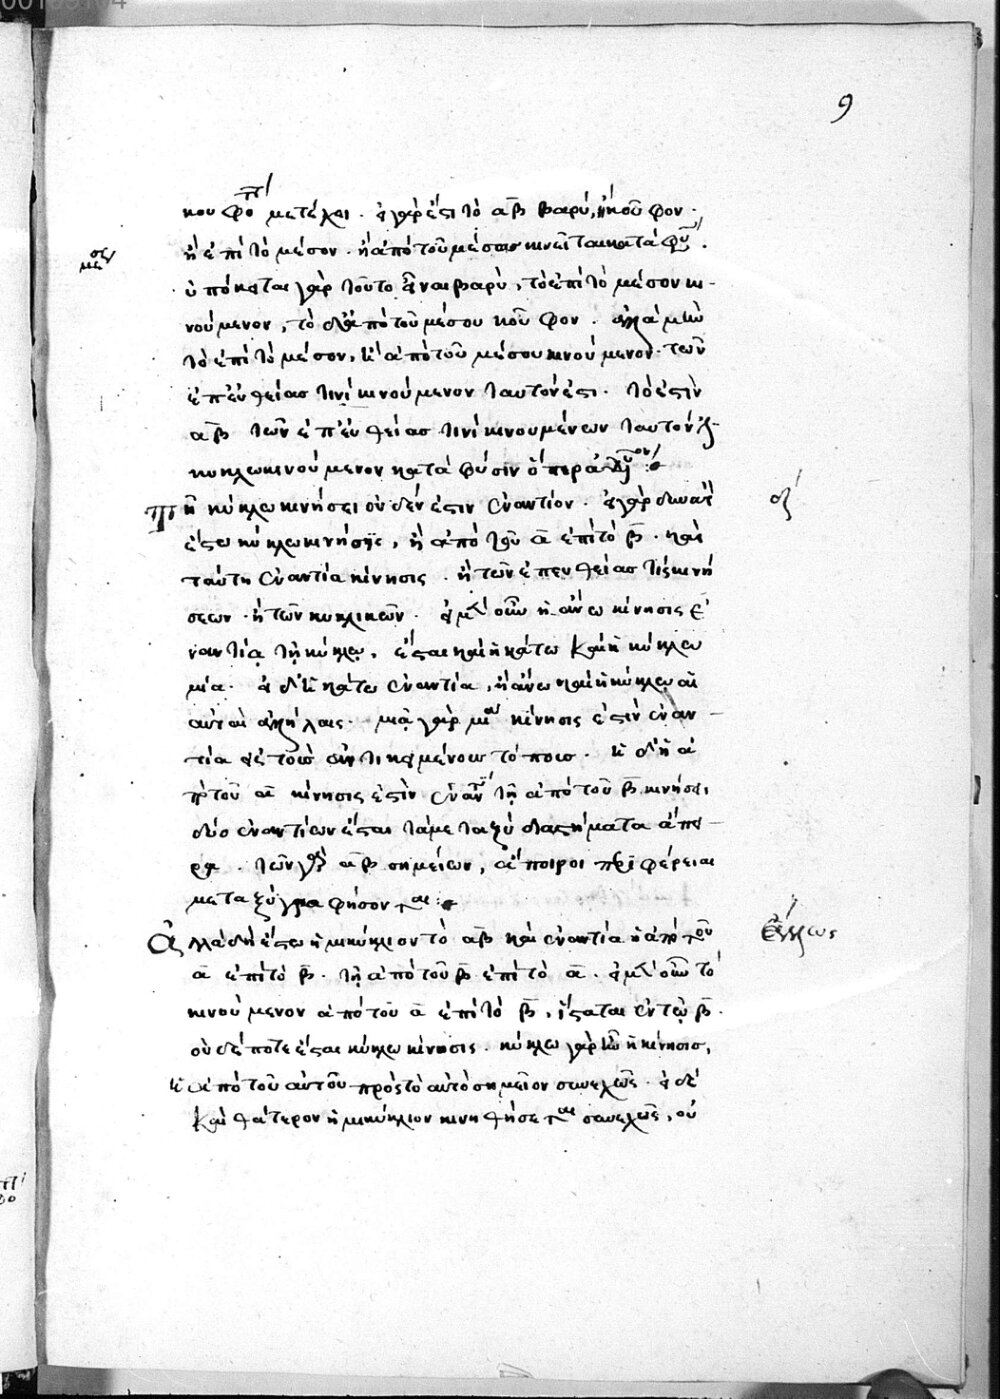 9
κουφότη μετέχει. εἰ γάρ ἐστι τὸ αβ βαρὺ, ἢ κοῦφον.
ἢ ἐπὶ τὸ μέσον. ἢ ἀπὸ τοῦ μέσου κινεῖται κατὰ φύ.
ὑπόκειται γὰρ τοῦτο εἶναι βαρὺ, τὸ ἐπὶ τὸ μέσον κι-
νούμενον, τὸ δὲ ἀπὸ τοῦ μέσου κοῦφον. ἀλλὰ μὴν
τὸ ἐπὶ τὸ μέσον, καὶ ἀπὸ τοῦ μέσου κινούμενον τῶν
ἐπ' εὐθείας τινὶ κινούμενον ταυτόν ἐστι. τὸ ἐστὶν
αβ τῶν ἐπ' εὐθείας τινὶ κινουμένων ταυτὸν
κύκλω κινούμενον κατὰ φύσιν ὅπερ ἀδύον
Τῆ κύκλω κινήσει οὐδέν ἐστιν ἐναντίον. εἰ γὰρ δυνατ
ἔστω κύκλω κίνησις, ἡ ἀπὸ τοῦ α ἐπὶ τὸ β. καὶ
ταύτη ἐναντία κίνησις. ἢ τῶν ἐπ' εὐθείας τὶς κινή
σεων. ἢ τῶν κυκλικῶν. εἰ μὲν οὖν ἡ ἄνω κίνησις ἐ
ναντία τῆ κύκλω, ἔσται καὶ ἡ κάτω καὶ ἡ κύκλω
μία. εἰ δὲ ἡ κάτω ἐναντία, ἡ ἄνω καὶ ἡ κύκλω αἱ
αὐταὶ ἀλλήλαις. μιᾷ γὰρ μία κίνησις ἐστὶν ἐναν-
τία ἐν τοῖς ἀντικειμένοις τόποις. εἰ δὲ ἡ ἀ
πὸ τοῦ α κίνησις ἐστὶν ἐναντία τῆ ἀπὸ τοῦ β κινήσει,
δύο ἐναντίων ἔσται τὰ μεταξὺ διαστήματα ἄπει-
ρα. τῶν γὰρ αβ σημείων, ἄπειροι περιφέρειαι
μεταξὺ γραφήσονται
Ἀλλὰ δὴ ἔστω ἡμικύκλιον τὸ αβ καὶ ἐναντία ἡ ἀπὸ τοῦ
α ἐπὶ τὸ β. τῆ ἀπὸ τοῦ β ἐπὶ τὸ α. εἰ μὲν οὖν τὸ
κινούμενον ἀπὸ τοῦ α ἐπὶ τὸ β, ἵσταται ἐν τῷ β.
οὐδέποτε ἔσται κύκλω κίνησις. κύκλω γὰρ ἦν ἡ κίνησις,
ἡ ἀπὸ τοῦ αὐτοῦ πρὸς τὸ αὐτὸ σημεῖον συνεχῶς. εἰ δὲ
καὶ θάτερον ἡμικύκλιον κινηθήσεται συνεχῶς, οὐ
ἄλλως